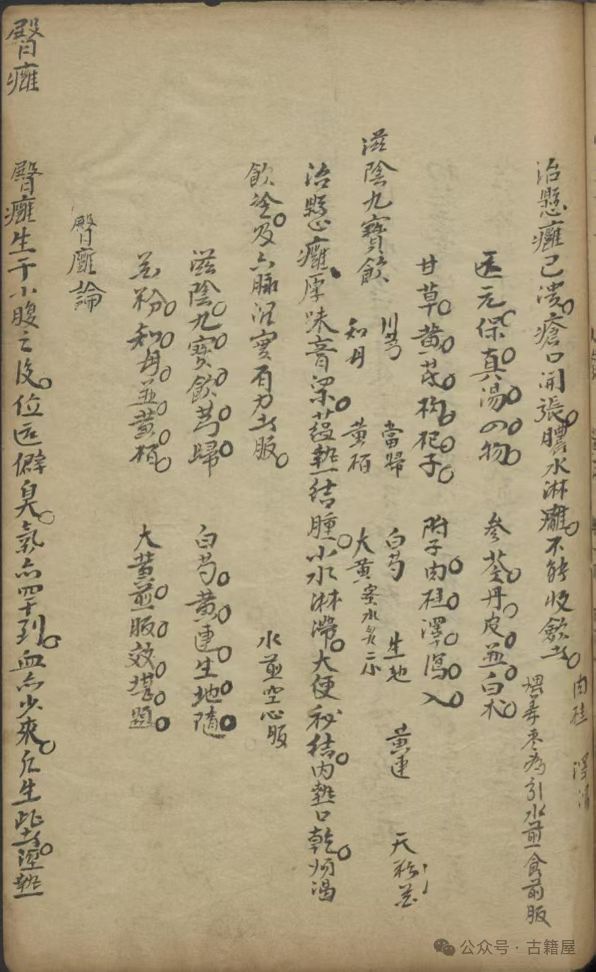 肉桂 澤瀉
治懸癰已潰瘡口開張膿水淋癰不能收斂者
薑棗為引水煎食前服
医元保真湯四物 參苓丹皮並白朮
甘草黃芪枸杞子 附子肉桂澤瀉入
滋陰九寶飲
川芎 當歸 白芍 生地 黃連 天花粉
知母 黃栢 大黃蜜水炙二小
治懸癰厚味膏粱蘊熱結腫小水淋滯大便秘結內熱口乾煩渴
飲冷及六脉沉實有力者服 水煎空心服
滋陰九寶飲芎歸 白芍黃連生地隨
花粉知母並黃栢 大黃煎服效堪題
臀癰論
臀癰生于小腹之後位近僻奧氣亦罕到血亦少來凡生此者濕熱
臀癰
公众号·古籍屋